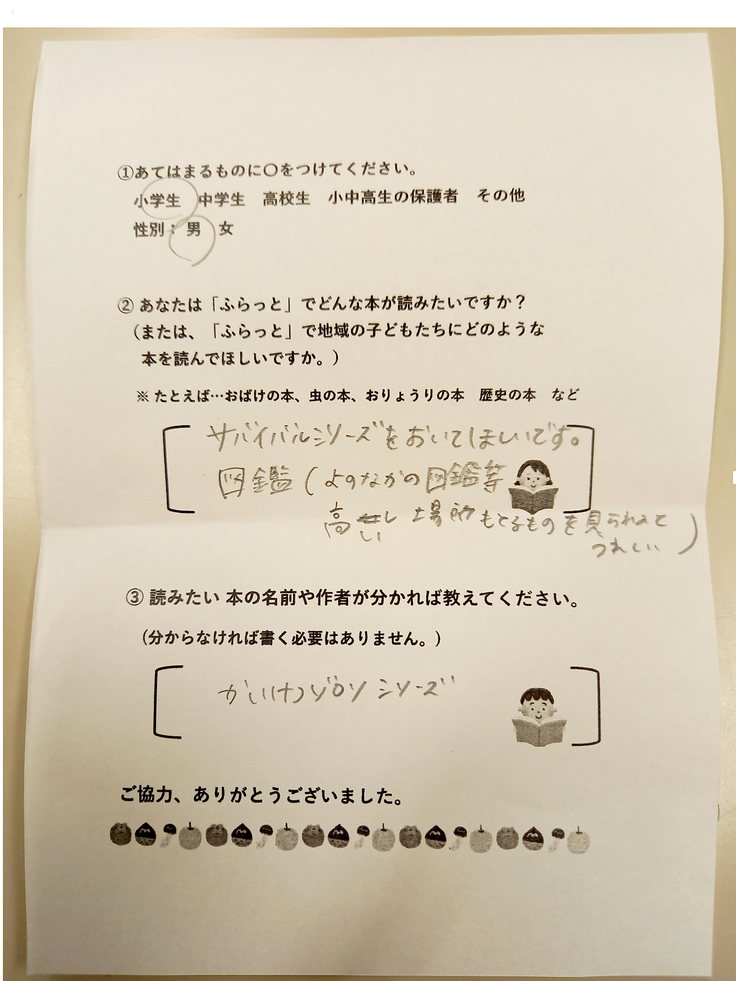 ①あてはまるものに〇をつけてください。
小学生　中学生　高校生　小中高生の保護者　その他
性別：　男　女
② あなたは「ふらっと」でどんな本が読みたいですか？
（または、「ふらっと」で地域の子どもたちにどのような
本を読んでほしいですか。）
※ たとえば…おばけの本、虫の本、おりょうりの本　歴史の本　など
サバイバルシリーズをおいてほしいです。
図鑑（よのなかの図鑑等
高い場所もとるものを見られると
うれしい）
③ 読みたい 本の名前や作者が分かれば教えてください。
（分からなければ書く必要はありません。）
かいけつゾロリシリーズ
ご協力、ありがとうございました。